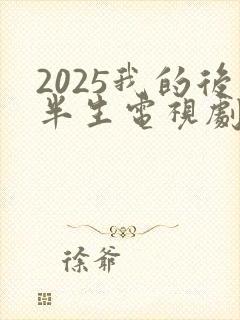 2025我的後
半生電視劇
徐爺